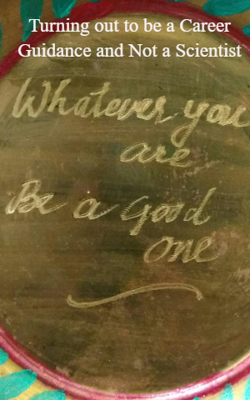 Turning out to be a Career
Guidance and Not a Scientist
Whatever you
are
Be a good
one